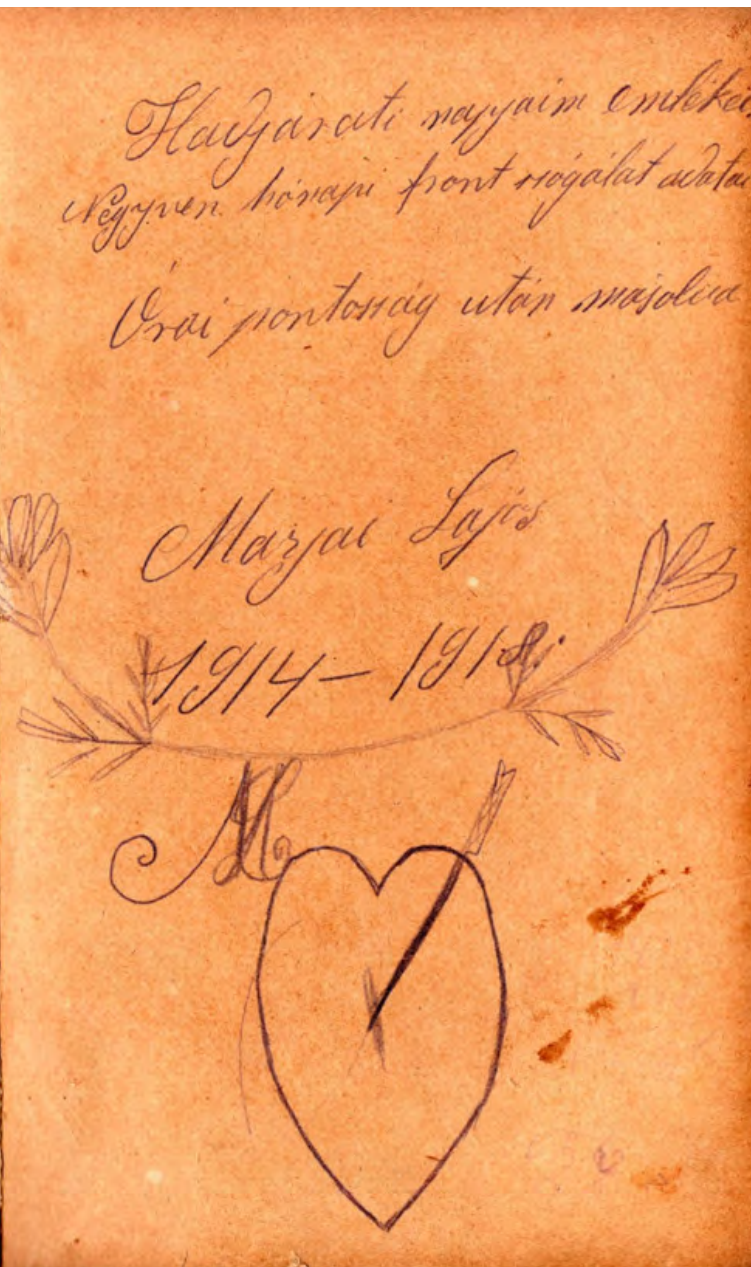 Hadjárati napjaim emlékei
Negyven hónapi front szógálat adatai
Órai pontosság után másolva
Marjai Lajos
1914-1918